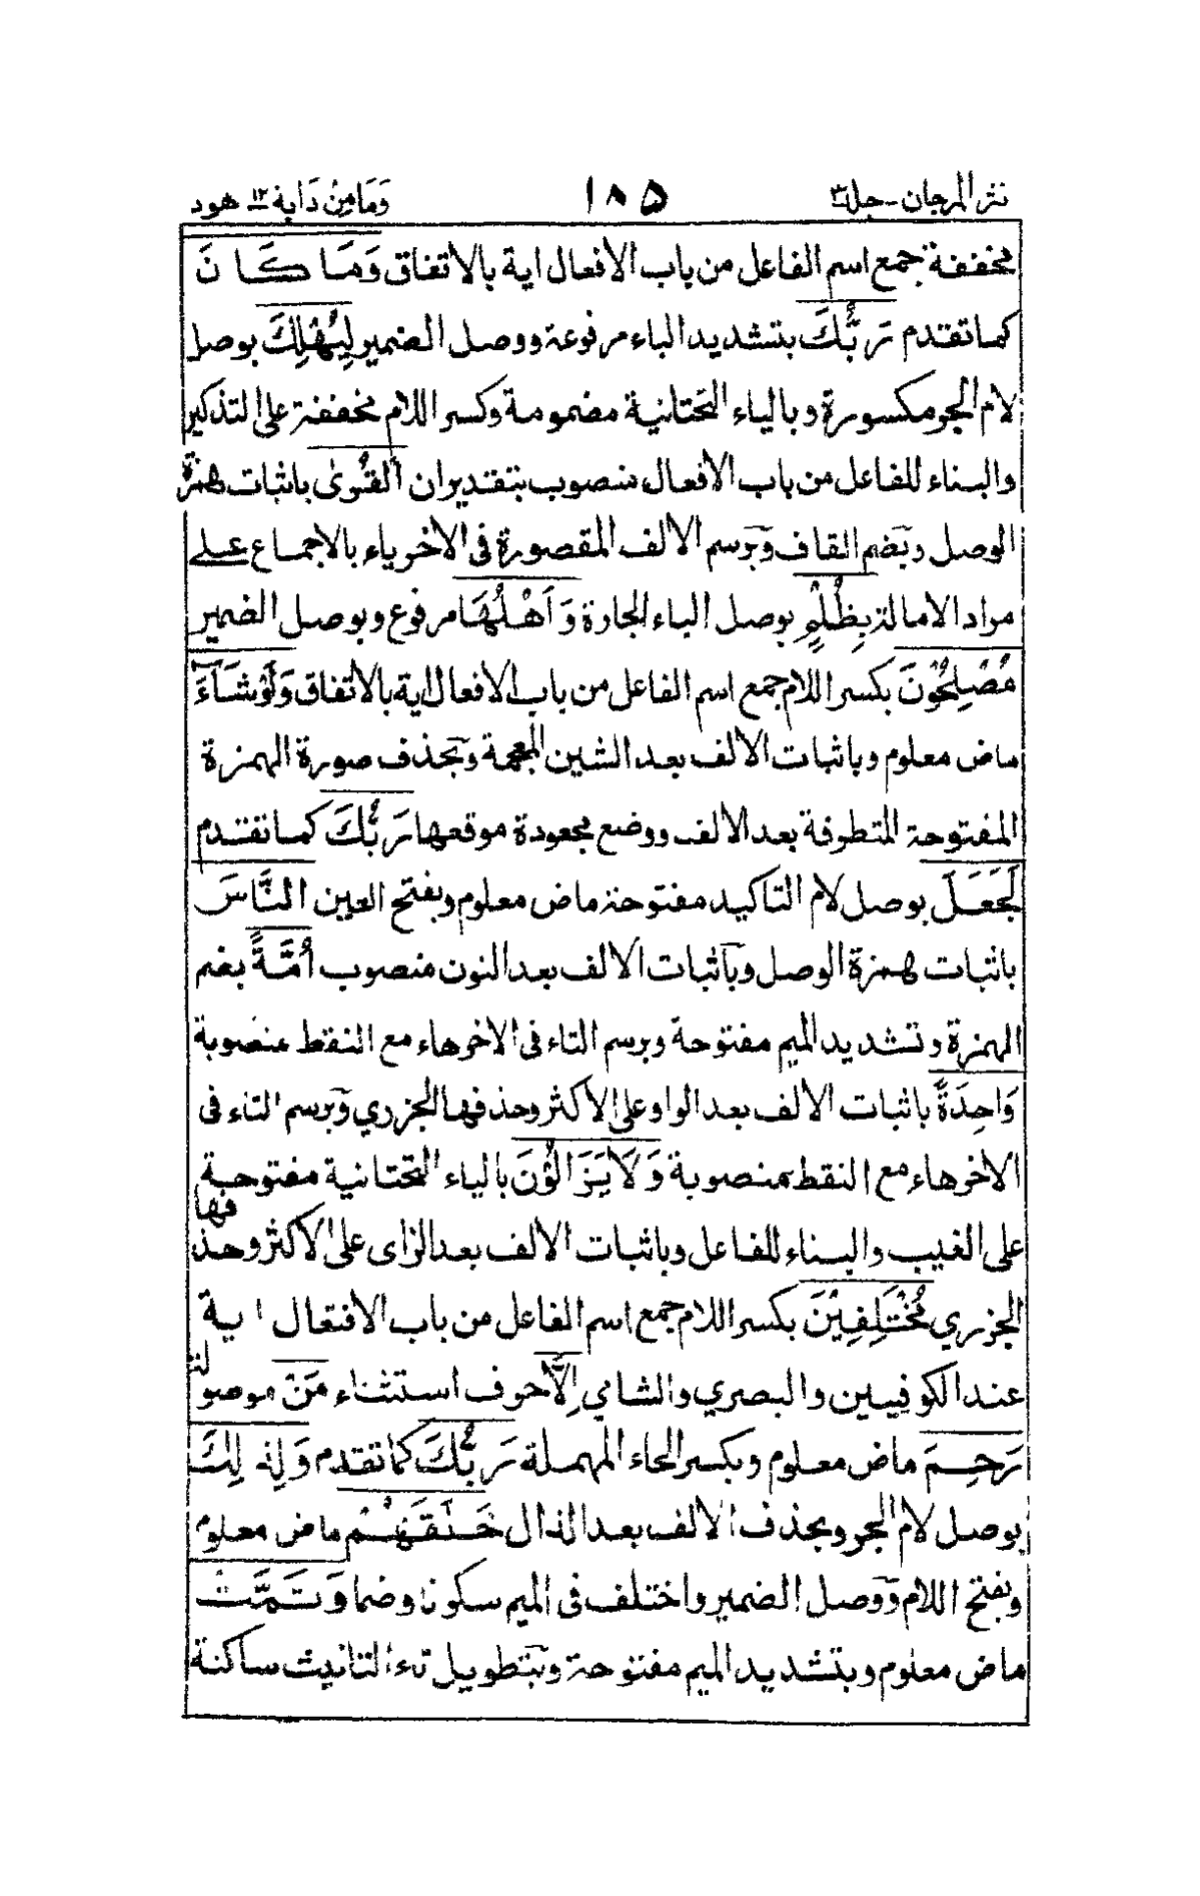 نثر المرجان - جلد ٣ ١٨٥ وَمَا مِنْ دَابة ١٢ هود
مخففة جمع اسم الفاعل من باب الافعال اية بالاتفاق وَمَا كَانَ
كما تقدم رَبُّكَ بتشديد الباء مرفوعة ووصل الضمير لِيُهْلِكَ بوصل
لام الجر مكسورة وبالياء التحتانية مضمومة وكسر اللام مخففة على التذكير
والبناء للفاعل من باب الافعال منصوب بتقدير ان الْقُرٰى باثبات همزة
الوصل وبضم القاف وبرسم الالف المقصورة فى الاخر ياء بالاجماع على
مراد الامالة بِظُلْمٍ بوصل الباء الجارة وَاَهْلُهَا مرفوع وبوصل الضمير
مُصْلِحُوْنَ بكسر اللام جمع اسم الفاعل من باب الافعال اية بالاتفاق وَلَوْ شَآءَ
ماض معلوم وباثبات الالف بعد الشين المعجمة وبحذف صورة الهمزة
المفتوحة المتطرفة بعد الالف ووضع مجعودة موقعها رَبُّكَ كما تقدم
لَجَعَلَ بوصل لام التاكيد مفتوحة ماض معلوم وبفتح العين النَّاسَ
باثبات همزة الوصل وباثبات الالف بعد النون منصوب اُمَّةً بضم
الهمزة وتشديد الميم مفتوحة وبرسم التاء فى الاخر هاء مع النقط منصوبة
وَاحِدَةً باثبات الالف بعد الواو على الاكثر وحذفها الجزري وبرسم التاء فى
الاخر هاء مع النقط منصوبة وَلَا يَزَالُوْنَ بالياء التحتانية مفتوحة
على الغيب والبناء للفاعل وباثبات الالف بعد الزاى على الاكثر وحذفها
الجزري مُخْتَلِفِيْنَ بكسر اللام جمع اسم الفاعل من باب الافتعال اية
عند الكوفيين والبصري والشامي اِلَّا حرف استثناء مَنْ موصولة
رَحِمَ ماض معلوم وبكسر الحاء المهملة رَبُّكَ كما تقدم وَلِذٰلِكَ
بوصل لام الجر وبحذف الالف بعد الذال خَلَقَهُمْ ماض معلوم
وبفتح اللام ووصل الضمير واختلف فى الميم سكونا وضما وَتَمَّتْ
ماض معلوم وبتشديد الميم مفتوحة وبتطويل تاء التانيث ساكنة